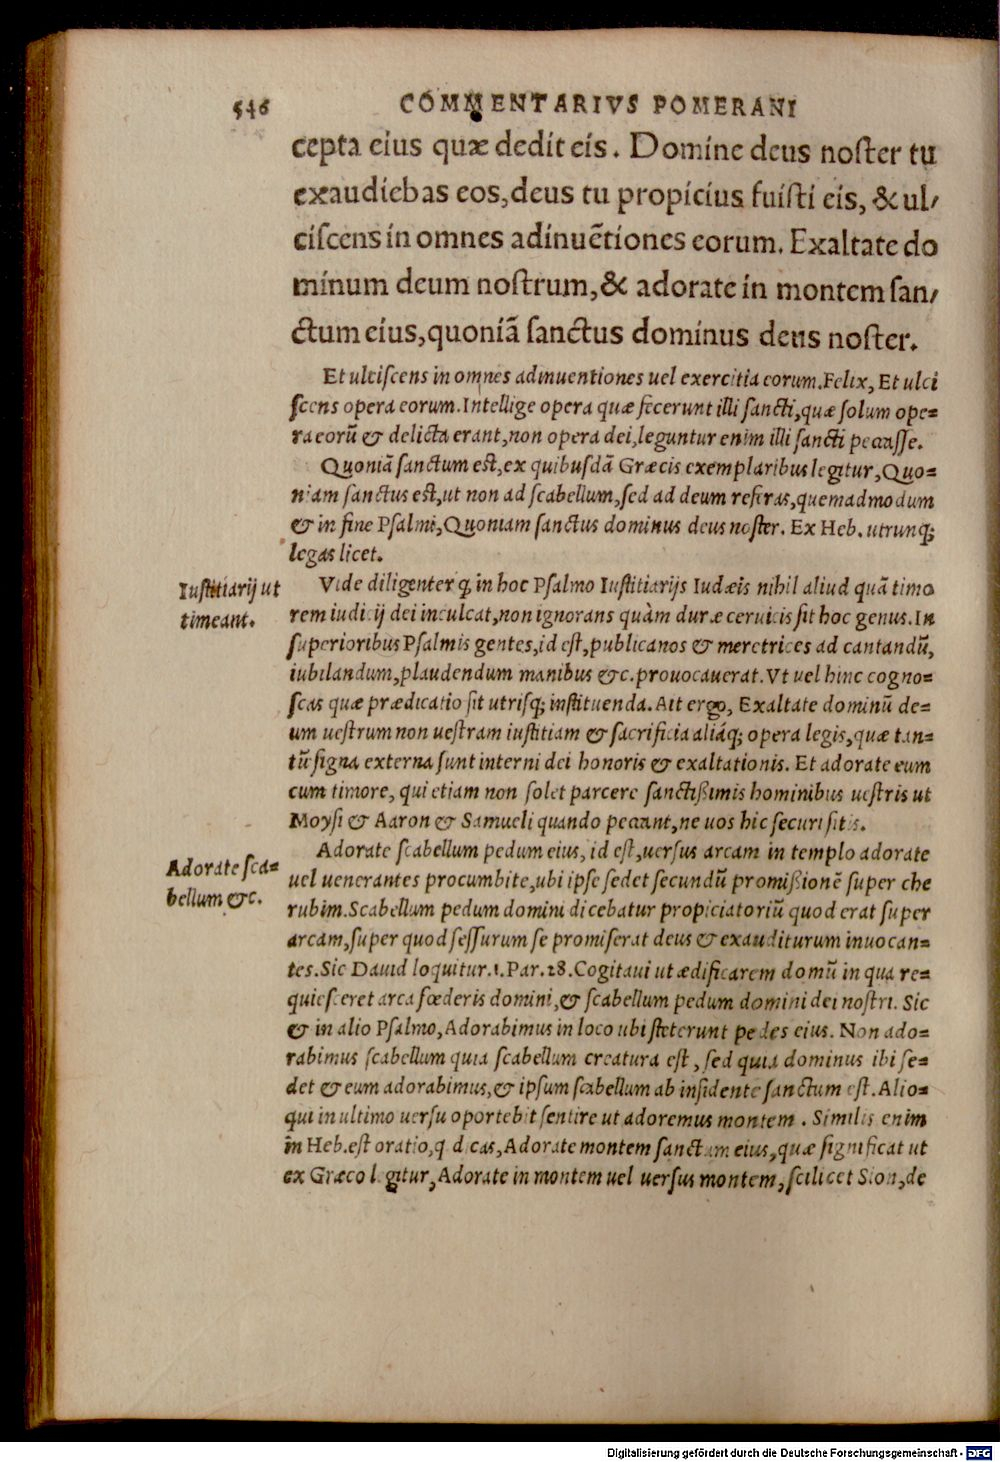 546 COMMENTARIVS POMERANI
cepta eius quæ dedit eis. Domine deus noſter tu
exaudiebas eos, deus tu propicius fuiſti eis, & ul⸗
ciſcens in omnes adinuẽtiones eorum. Exaltate do
minum deum noſtrum, & adorate in montem ſan⸗
ctum eius, quoniã ſanctus dominus deus noſter.
Et ulciſcens in omnes adinuentiones uel exercitia eorum. Felix, Et ulci
ſcens opera eorum. Intellige opera quæ fecerunt illi ſancti, quæ ſolum ope⸗
ra eorũ & delicta erant, non opera dei, leguntur enim illi ſancti peccaſſe.
Quoniã ſanctum eſt, ex quibuſdã Græcis exemplaribus legitur, Quo⸗
niam ſanctus eſt, ut non ad ſcabellum, ſed ad deum referas, quemadmodum
& in fine Pſalmi, Quoniam ſanctus dominus deus noſter. Ex Heb. utrunq;
legas licet.
Iuſtitiarij ut
timeant.
Vide diligenter ꝙ in hoc Pſalmo Iuſtitiarijs Iudæis nihil aliud quã timo
rem iudicij dei inculcat, non ignorans quàm duræ ceruicis ſit hoc genus. In
ſuperioribus Pſalmis gentes, id eſt, publicanos & meretrices ad cantandũ,
iubilandum, plaudendum manibus &c. prouocauerat. Vt uel hinc cogno⸗
ſcas quæ prædicatio ſit utriſq; inſtituenda. Ait ergo, Exaltate dominũ de⸗
um ueſtrum non ueſtram iuſtitiam & ſacrificia aliáq; opera legis, quæ tan⸗
tũ ſigna externa ſunt interni dei honoris & exaltationis. Et adorate eum
cum timore, qui etiam non ſolet parcere ſanctißimis hominibus ueſtris ut
Moyſi & Aaron & Samueli quando peccant, ne uos hic ſecuri ſitis.
Adorate ſca⸗
bellum &c.
Adorate ſcabellum pedum eius, id eſt, uerſus arcam in templo adorate
uel uenerantes procumbite, ubi ipſe ſedet ſecundũ promißionẽ ſuper che
rubim. Scabellum pedum domini dicebatur propiciatoriũ quod erat ſuper
arcam, ſuper quod ſeſſurum ſe promiſerat deus & exauditurum inuocan⸗
tes. Sic Dauid loquitur. 1. Par. 28. Cogitaui ut ædificarem domũ in qua re⸗
quieſceret arca fœderis domini, & ſcabellum pedum domini dei noſtri. Sic
& in alio Pſalmo, Adorabimus in loco ubi ſteterunt pedes eius. Non ado⸗
rabimus ſcabellum quia ſcabellum creatura eſt, ſed quia dominus ibi ſe⸗
det & eum adorabimus, & ipſum ſcabellum ab inſidente ſanctum eſt. Alio⸗
qui in ultimo uerſu oportebit ſentire ut adoremus montem. Similis enim
in Heb. eſt oratio, q dicas, Adorate montem ſanctum eius, quæ ſignificat ut
ex Græco legitur, Adorate in montem uel uerſus montem, ſcilicet Sion, de
Digitalisierung gefördert durch die Deutsche Forschungsgemeinschaft - DFG